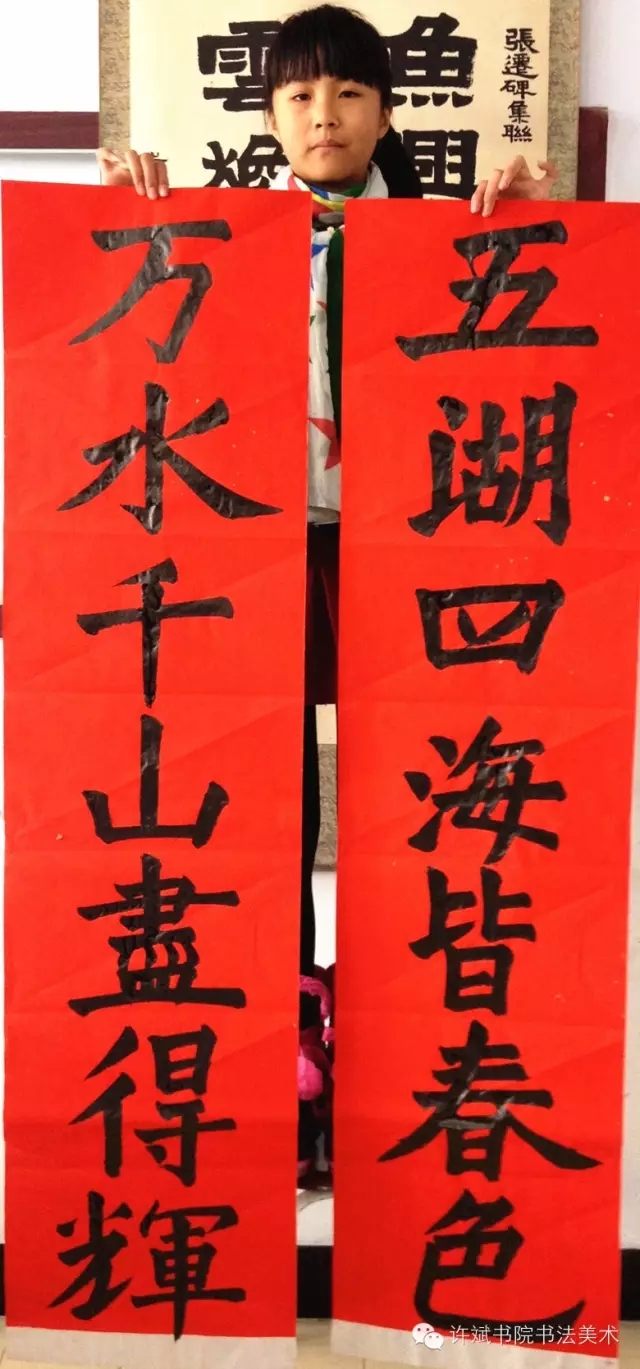 五湖四海皆春色
万水千山盡得輝
張遷碑集聯
魚
雲
許斌书院书法美术